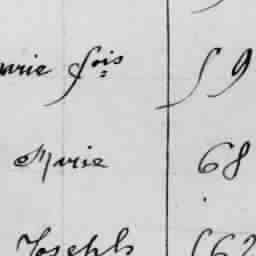 arie fois 59
Marie 68
Joseph 62